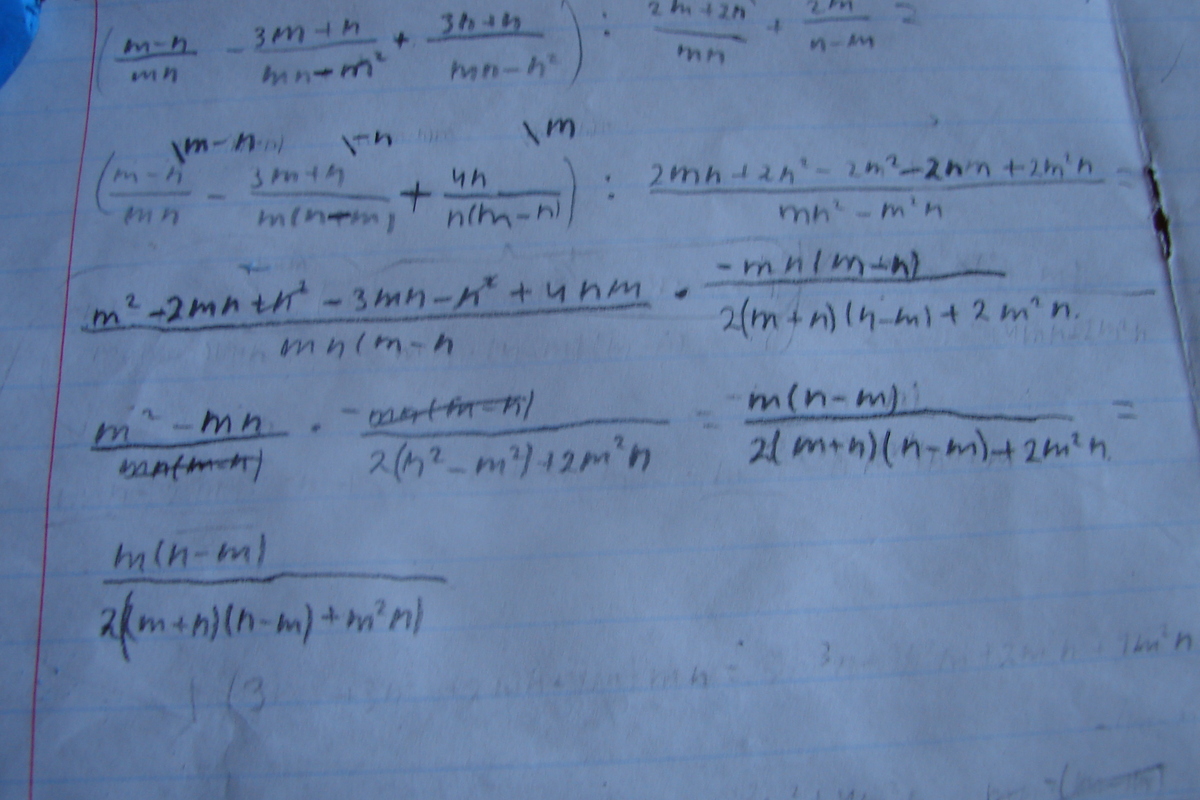 ( (m-n)/(mn) - (3m+n)/(mn-m²) + (3n+n)/(mn-n²) ) : (2m+2n)/(mn) + (2m)/(n-m) =
\m-n \-n \m
( (m-n)/(mn) - (3m+n)/(m(n-m)) + (4n)/(n(m-n)) ) : (2mn+2n²-2m²-2nm+2m²n)/(mn²-m²n) =
(m²-2mn+n²-3mn-n²+4nm)/(mn(m-n) · (-mn(m-n))/(2(m+n)(n-m)+2m²n.
(m²-mn)/(mn(m-n)) · (-mn(m-n))/(2(n²-m²)+2m²n) = (m(n-m))/(2(m+n)(n-m)+2m²n) =
(m(n-m))/(2((m+n)(n-m)+m²n))